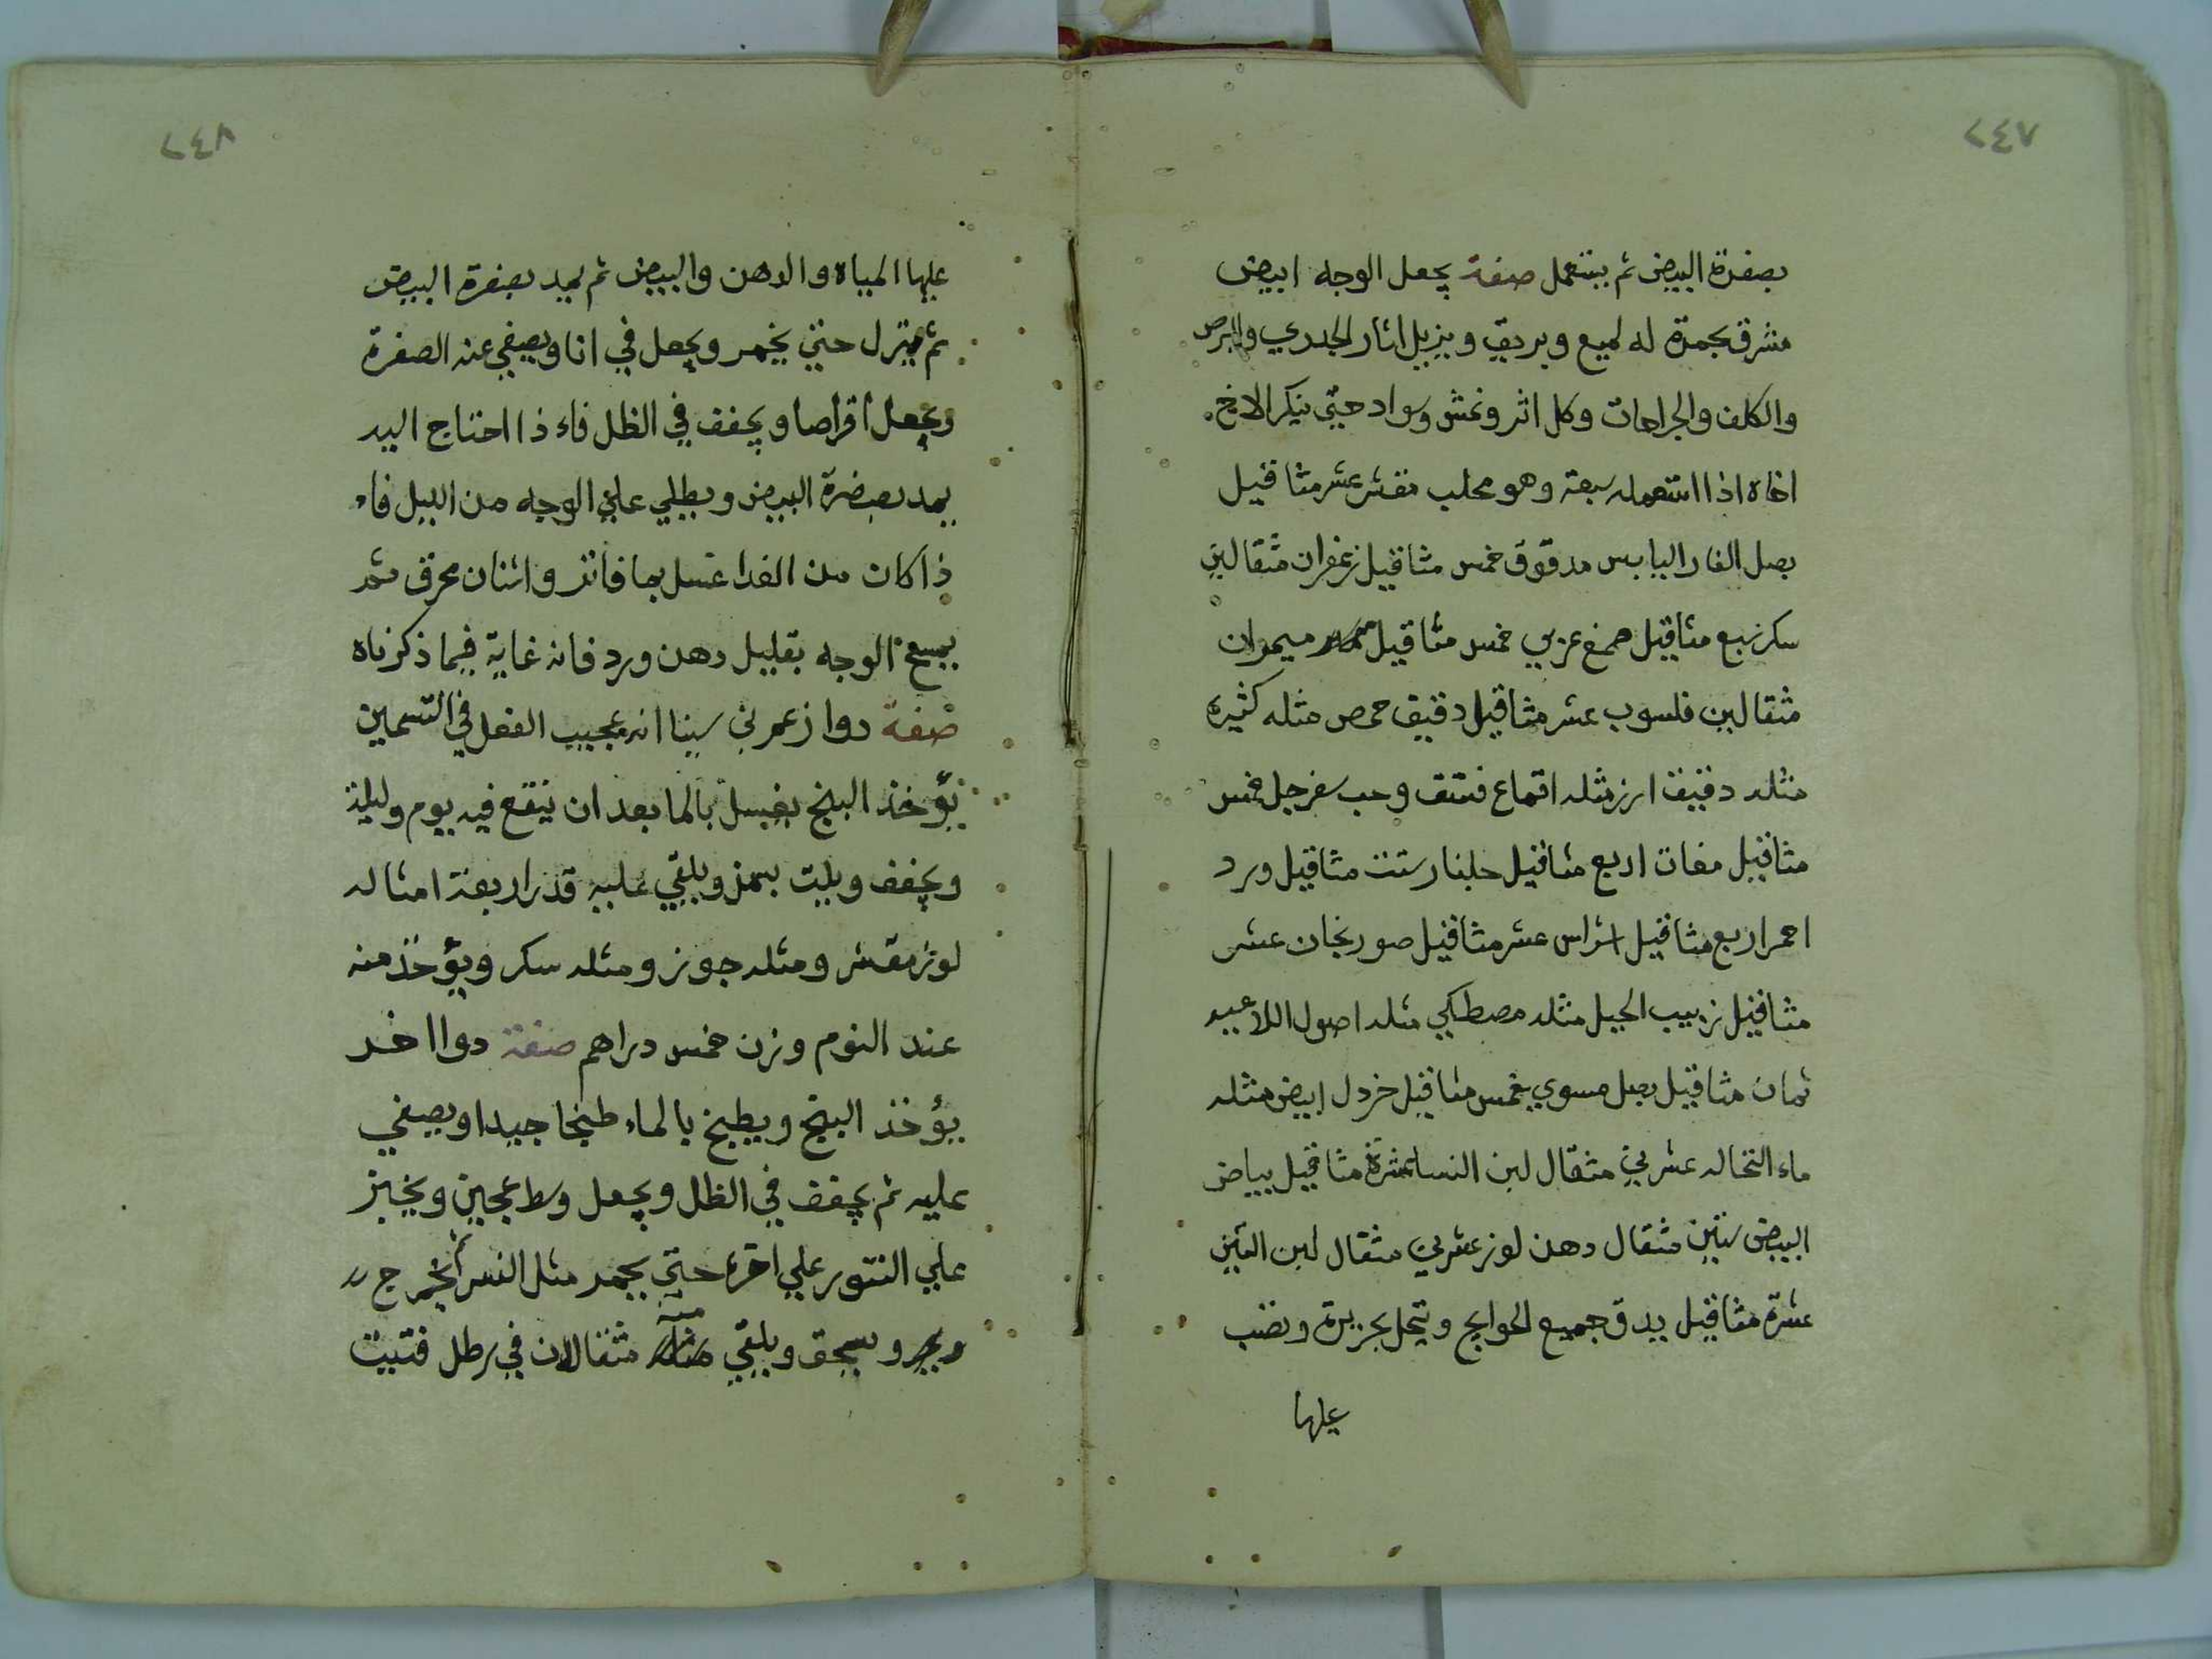 ٢٤٧
بصفرة البيض ثم يستعمل صفة يجعل الوجه ابيض
مشرق بحمرة له لميع وبريق ويزيل اثار الجدري والبرص
والكلف والجراحات وكل اثر ونمش وسواد حتي ينكر الاخ
اخاه اذا استعمله سبعة وهو محلب مقشر عشر مثاقيل
بصل الفار اليابس مدقوق خمس مثاقيل زعفران مثقالين
سكر نبع مثاقيل صمغ عربي خمس مثاقيل ميموان
مثقالين فلسوب عشر مثاقيل دقيق حمص مثله كثيره
مثله دقيق ارز مثله اقماع فستق وحب سفرجل خمس
مثاقيل مغات اربع مثاقيل جلنار ستت مثاقيل ورد
احمر اربع مثاقيل اشراس عشر مثاقيل صورنجان عشر
مثاقيل زبيب الجبل مثله مصطكي مثله اصول اللاعيه
ثمان مثاقيل بصل مسوي خمس مثاقيل خردل ابيض مثله
ماء النخاله عشرين مثقال لبن النسا عشرة مثاقيل بياض
البيض ستين مثقال دهن لوز عشرين مثقال لبن التين
عشرة مثاقيل يدق جميع الحوايج وتنحل بحريرة وتضب
عليها
٢٤٨
عليها المياه والدهن والبيض ثم يمد بصفرة البيض
ثم يترل حتي يخمر ويجعل في انا ويصفي عنه الصفرة
ويجعل اقراصا ويجفف في الظل فاء ذا احتاج اليه
يمد بصفرة البيض ويطلي علي الوجه من الليل فاء
ذا كان من الغدا غسل بما فاتر واشنان محرق ثم
يمسح الوجه بقليل دهن ورد فانه غاية فيما ذكرناه
صفة دوا زعم بن سينا انه عجيب الفعل في التسمين
يؤخذ البنج يغسل بالما بعد ان ينقع فيه يوم وليلة
ويجفف ويلت بسمن ويلقي عليه قدر اربعة امثاله
لوز مقشر ومثله جوز ومثله سكر ويؤخذ منه
عند النوم وزن خمس دراهم صفة دوا اخر
يؤخذ البنج ويطبخ بالماء طبخا جيدا ويصفي
عليه ثم يجفف في الظل ويجعل وسط عجين ويخبز
علي التنور علي اجره حتي يجمد مثل النسر ثم يخرج
ويسحق ويلقي منه مثقالان في رطل فتيت